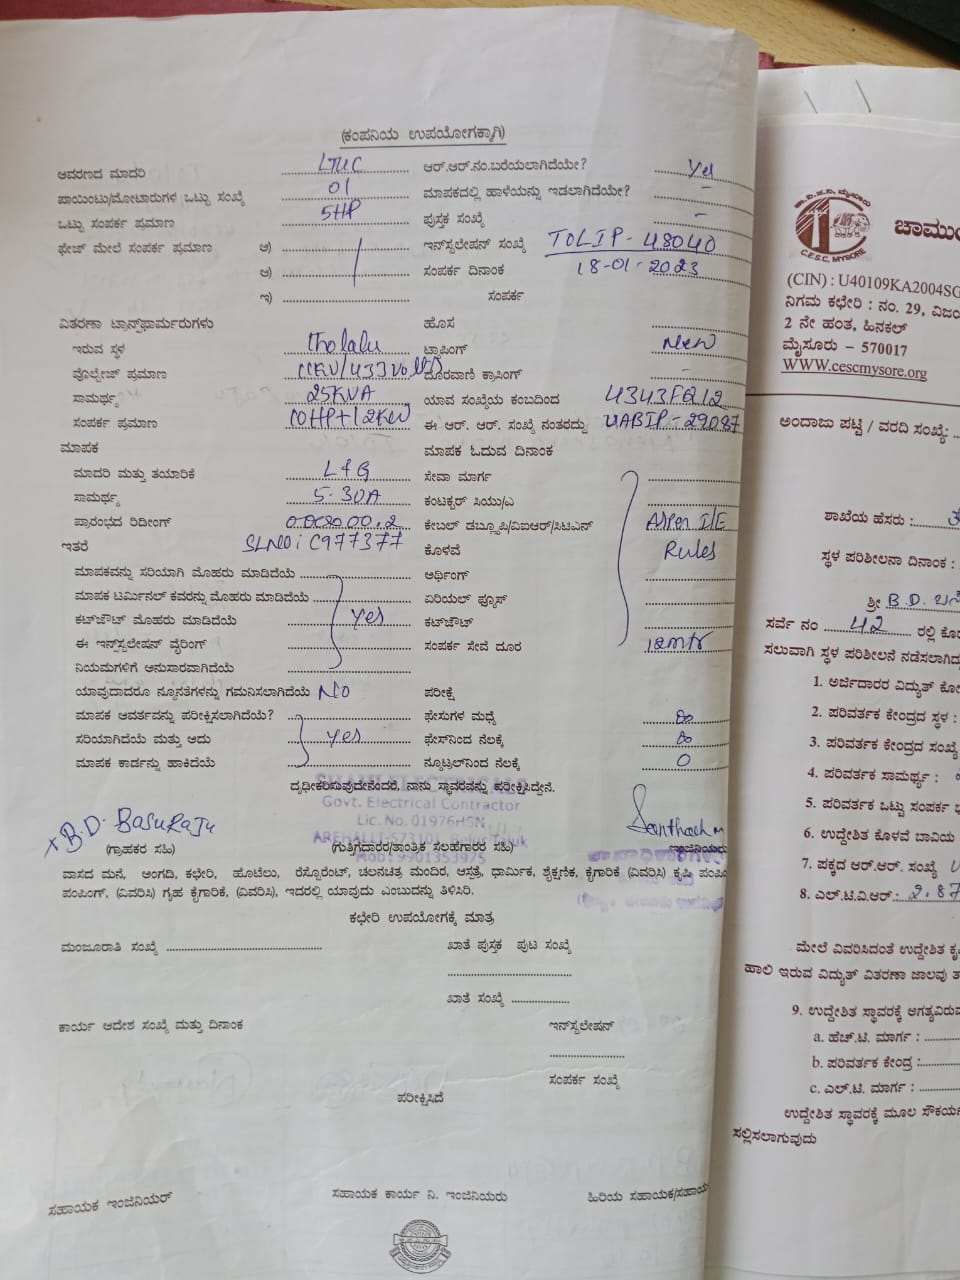 (ಕಂಪನಿಯ ಉಪಯೋಗಕ್ಕಾಗಿ)
ಆವರಣದ ಮಾದರಿ LTUC ಆರ್.ಆರ್.ನಂ.ಬರೆಯಲಾಗಿದೆಯೇ? Yes
ಪಾಯಿಂಟು/ಮೋಟಾರುಗಳ ಒಟ್ಟು ಸಂಖ್ಯೆ 01 ಮಾಪಕದಲ್ಲಿ ಹಾಳೆಯನ್ನು ಇಡಲಾಗಿದೆಯೇ? -
ಒಟ್ಟು ಸಂಪರ್ಕ ಪ್ರಮಾಣ 5HP ಪುಸ್ತಕ ಸಂಖ್ಯೆ -
ಫೇಜ್ ಮೇಲೆ ಸಂಪರ್ಕ ಪ್ರಮಾಣ ಅ) ಇನ್‌ಸ್ಟಲೇಷನ್ ಸಂಖ್ಯೆ TOLIP-48040
ಆ) ಸಂಪರ್ಕ ದಿನಾಂಕ 18-01-2023
ಇ) ಸಂಪರ್ಕ
ವಿತರಣಾ ಟ್ರಾನ್ಸ್‌ಫಾರ್ಮರುಗಳು ಹೊಸ
ಇರುವ ಸ್ಥಳ tholalu ಟ್ಯಾಪಿಂಗ್ New
ವೋಲ್ಟೇಜ್ ಪ್ರಮಾಣ 11KV/433Volts ದೂರವಾಣಿ ಕ್ರಾಸಿಂಗ್ -
ಸಾಮರ್ಥ್ಯ 25KVA ಯಾವ ಸಂಖ್ಯೆಯ ಕಂಬದಿಂದ
ಸಂಪರ್ಕ ಪ್ರಮಾಣ 10HP+12KW ಈ ಆರ್. ಆರ್. ಸಂಖ್ಯೆ ನಂತರದ್ದು UABIP-29087
ಮಾಪಕ ಮಾಪಕ ಓದುವ ದಿನಾಂಕ
ಮಾದರಿ ಮತ್ತು ತಯಾರಿಕೆ L&G ಸೇವಾ ಮಾರ್ಗ
ಸಾಮರ್ಥ್ಯ 5-30A ಕಂಟಕ್ಟರ್ ಸಿಯು/ಎ
ಪ್ರಾರಂಭದ ರಿಡೀಂಗ್ ಕೇಬಲ್ ಡಬ್ಲ್ಯೂಪಿ/ವಿಐಆರ್/ಸಿಟಿಎಸ್ Asper I/E
ಇತರೆ SLNO: C977377 ಕೊಳವೆ Rules
ಮಾಪಕವನ್ನು ಸರಿಯಾಗಿ ಮೊಹರು ಮಾಡಿದೆಯೆ ಅರ್ಥಿಂಗ್
ಮಾಪಕ ಟರ್ಮಿನಲ್ ಕವರನ್ನು ಮೊಹರು ಮಾಡಿದೆಯೆ ಏರಿಯಲ್ ಫ್ಯೂಸ್
ಕಟ್‌ಔಟ್ ಮೊಹರು ಮಾಡಿದೆಯೆ Yes ಕಟ್‌ಔಟ್
ಈ ಇನ್‌ಸ್ಟಲೇಷನ್ ವೈರಿಂಗ್ ಸಂಪರ್ಕ ಸೇವೆ ದೂರ 12mtr
ನಿಯಮಗಳಿಗೆ ಅನುಸಾರವಾಗಿದೆಯೆ
ಯಾವುದಾದರೂ ನ್ಯೂನತೆಗಳನ್ನು ಗಮನಿಸಲಾಗಿದೆಯೆ NO ಪರೀಕ್ಷೆ
ಮಾಪಕ ಆವರ್ತವನ್ನು ಪರೀಕ್ಷಿಸಲಾಗಿದೆಯೆ? ಫೇಸುಗಳ ಮಧ್ಯೆ ∞
ಸರಿಯಾಗಿದೆಯೆ ಮತ್ತು ಅದು Yes ಫೇಸ್‌ನಿಂದ ನೆಲಕ್ಕೆ ∞
ಮಾಪಕ ಕಾರ್ಡನ್ನು ಹಾಕಿದೆಯೆ ನ್ಯೂಟ್ರಲ್‌ನಿಂದ ನೆಲಕ್ಕೆ 0
ದೃಢೀಕರಿಸುವುದೇನೆಂದರೆ, ನಾನು ಸ್ಥಾವರವನ್ನು ಪರೀಕ್ಷಿಸಿದ್ದೇನೆ.
SHAMI ELECTRICALS
Govt. Electrical Contractor
Lic. No. 01976HSN
AREHALLI-573101, Belur Taluk
Mob: 9901353975
B.D. Basuraju Santhosh
(ಗ್ರಾಹಕರ ಸಹಿ) (ಗುತ್ತಿಗೆದಾರರ/ತಾಂತ್ರಿಕ ಸಲಹೆಗಾರರ ಸಹಿ) ಇಂಜಿನಿಯರು
ವಾಸದ ಮನೆ, ಅಂಗಡಿ, ಕಛೇರಿ, ಹೊಟೇಲು, ರೆಸ್ಟೊರೆಂಟ್, ಚಲನಚಿತ್ರ ಮಂದಿರ, ಆಸ್ಪತ್ರೆ, ಧಾರ್ಮಿಕ, ಶೈಕ್ಷಣಿಕ, ಕೈಗಾರಿಕೆ (ವಿವರಿಸಿ) ಕೃಷಿ
ಪಂಪಿಂಗ್, (ವಿವರಿಸಿ) ಗೃಹ ಕೈಗಾರಿಕೆ, (ವಿವರಿಸಿ), ಇದರಲ್ಲಿ ಯಾವುದು ಎಂಬುದನ್ನು ತಿಳಿಸಿರಿ.
ಕಛೇರಿ ಉಪಯೋಗಕ್ಕೆ ಮಾತ್ರ
ಮಂಜೂರಾತಿ ಸಂಖ್ಯೆ ಖಾತೆ ಪುಸ್ತಕ ಪುಟ ಸಂಖ್ಯೆ
ಖಾತೆ ಸಂಖ್ಯೆ
ಕಾರ್ಯ ಆದೇಶ ಸಂಖ್ಯೆ ಮತ್ತು ದಿನಾಂಕ ಇನ್‌ಸ್ಟಲೇಷನ್
ಸಂಪರ್ಕ ಸಂಖ್ಯೆ
ಪರೀಕ್ಷಿಸಿದೆ
ಸಹಾಯಕ ಇಂಜಿನಿಯರ್ ಸಹಾಯಕ ಕಾರ್ಯ ನಿ. ಇಂಜಿನಿಯರು ಹಿರಿಯ ಸಹಾಯಕ/ಸಹಾಯ
C.E.S.C. MYSORE
ಚಾಮುಂ
(CIN) : U40109KA2004SG
ನಿಗಮ ಕಛೇರಿ : ನಂ. 29, ವಿಜಯ
2 ನೇ ಹಂತ, ಹಿನಕಲ್
ಮೈಸೂರು - 570017
WWW.cescmysore.org
ಅಂದಾಜು ಪಟ್ಟಿ / ವರದಿ ಸಂಖ್ಯೆ:
ಶಾಖೆಯ ಹೆಸರು :
ಸ್ಥಳ ಪರಿಶೀಲನಾ ದಿನಾಂಕ :
ಶ್ರೀ B.D. ಬಸ
ಸರ್ವೆ ನಂ 42 ರಲ್ಲಿ ಕೊ
ಸಲುವಾಗಿ ಸ್ಥಳ ಪರಿಶೀಲನೆ ನಡೆಸಲಾಗಿದ್ದು
1. ಅರ್ಜಿದಾರರ ವಿದ್ಯುತ್ ಕೋ
2. ಪರಿವರ್ತಕ ಕೇಂದ್ರದ ಸ್ಥಳ :
3. ಪರಿವರ್ತಕ ಕೇಂದ್ರದ ಸಂಖ್ಯೆ
4. ಪರಿವರ್ತಕ ಸಾಮರ್ಥ್ಯ :
5. ಪರಿವರ್ತಕ ಒಟ್ಟು ಸಂಪರ್ಕ
6. ಉದ್ದೇಶಿತ ಕೊಳವೆ ಬಾವಿಯ
7. ಪಕ್ಕದ ಆರ್.ಆರ್. ಸಂಖ್ಯೆ
8. ಎಲ್.ಟಿ.ವಿ.ಆರ್ : 2.87
ಮೇಲೆ ವಿವರಿಸಿದಂತೆ ಉದ್ದೇಶಿತ ಕೃ
ಹಾಲಿ ಇರುವ ವಿದ್ಯುತ್ ವಿತರಣಾ ಜಾಲವು
9. ಉದ್ದೇಶಿತ ಸ್ಥಾವರಕ್ಕೆ ಅಗತ್ಯವಿರುವ
a. ಹೆಚ್.ಟಿ. ಮಾರ್ಗ :
b. ಪರಿವರ್ತಕ ಕೇಂದ್ರ :
c. ಎಲ್.ಟಿ. ಮಾರ್ಗ :
ಉದ್ದೇಶಿತ ಸ್ಥಾವರಕ್ಕೆ ಮೂಲ ಸೌಕರ್ಯ
ಸಲ್ಲಿಸಲಾಗುವುದು